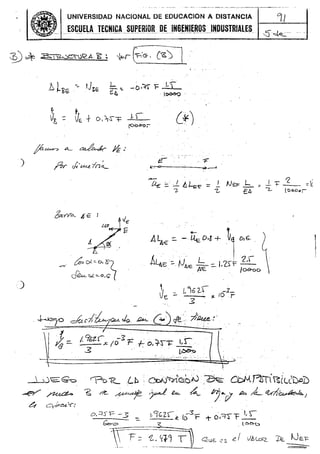 UNIVERSIDAD NACIONAL DE EDUCACION A DISTANCIA
ESCUELA TECNICA SUPERIOR DE INGENIEROS INDUSTRIALES
91
ESTRUCTURA B : Ver Fig. (8)
ΔL_BE = N_BE L/EA = -0.75 F 1.5/10000
V_B = V_E + 0.75 F 1.5/10000 (*)
a calcular V_E :
) Por simetría
E F
U_E = 1/2 ΔL_EF = 1/2 N_EF L/EA = 1/2 F 2/10000
Barra AE :
V_E
E
A
ΔL_AE = - U_E 0.8 + V_E 0.6
ΔL_AE = N_AE L/AE = 1.25 F 2.5/10000
)
V_E = 1.9625/3 x 10^-3 F
Luego sustituyendo en (*) se tiene:
V_B = 1.9625/3 x 10^-3 F + 0.75 F 1.5/10000
LUEGO POR LA CONDICIÓN DE COMPATIBILIDAD
el nudo B se mueve igual en la viga y en la articulada,
es decir:
= 1.9625/3 x 10^-3 F + 0.75 F 1.5/10000
F = 2.479 T Que es el VALOR DE N_EF